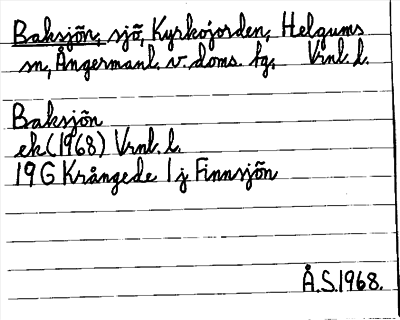 Baksjön, sjö, Kyrkojorden, Helgums
sn, Ångermanl. v. doms. fg. Vrnl. l.
Baksjön
ek (1968) Vrnl. l.
19G Krångede 1 j Finnsjön
Å.S. 1968.